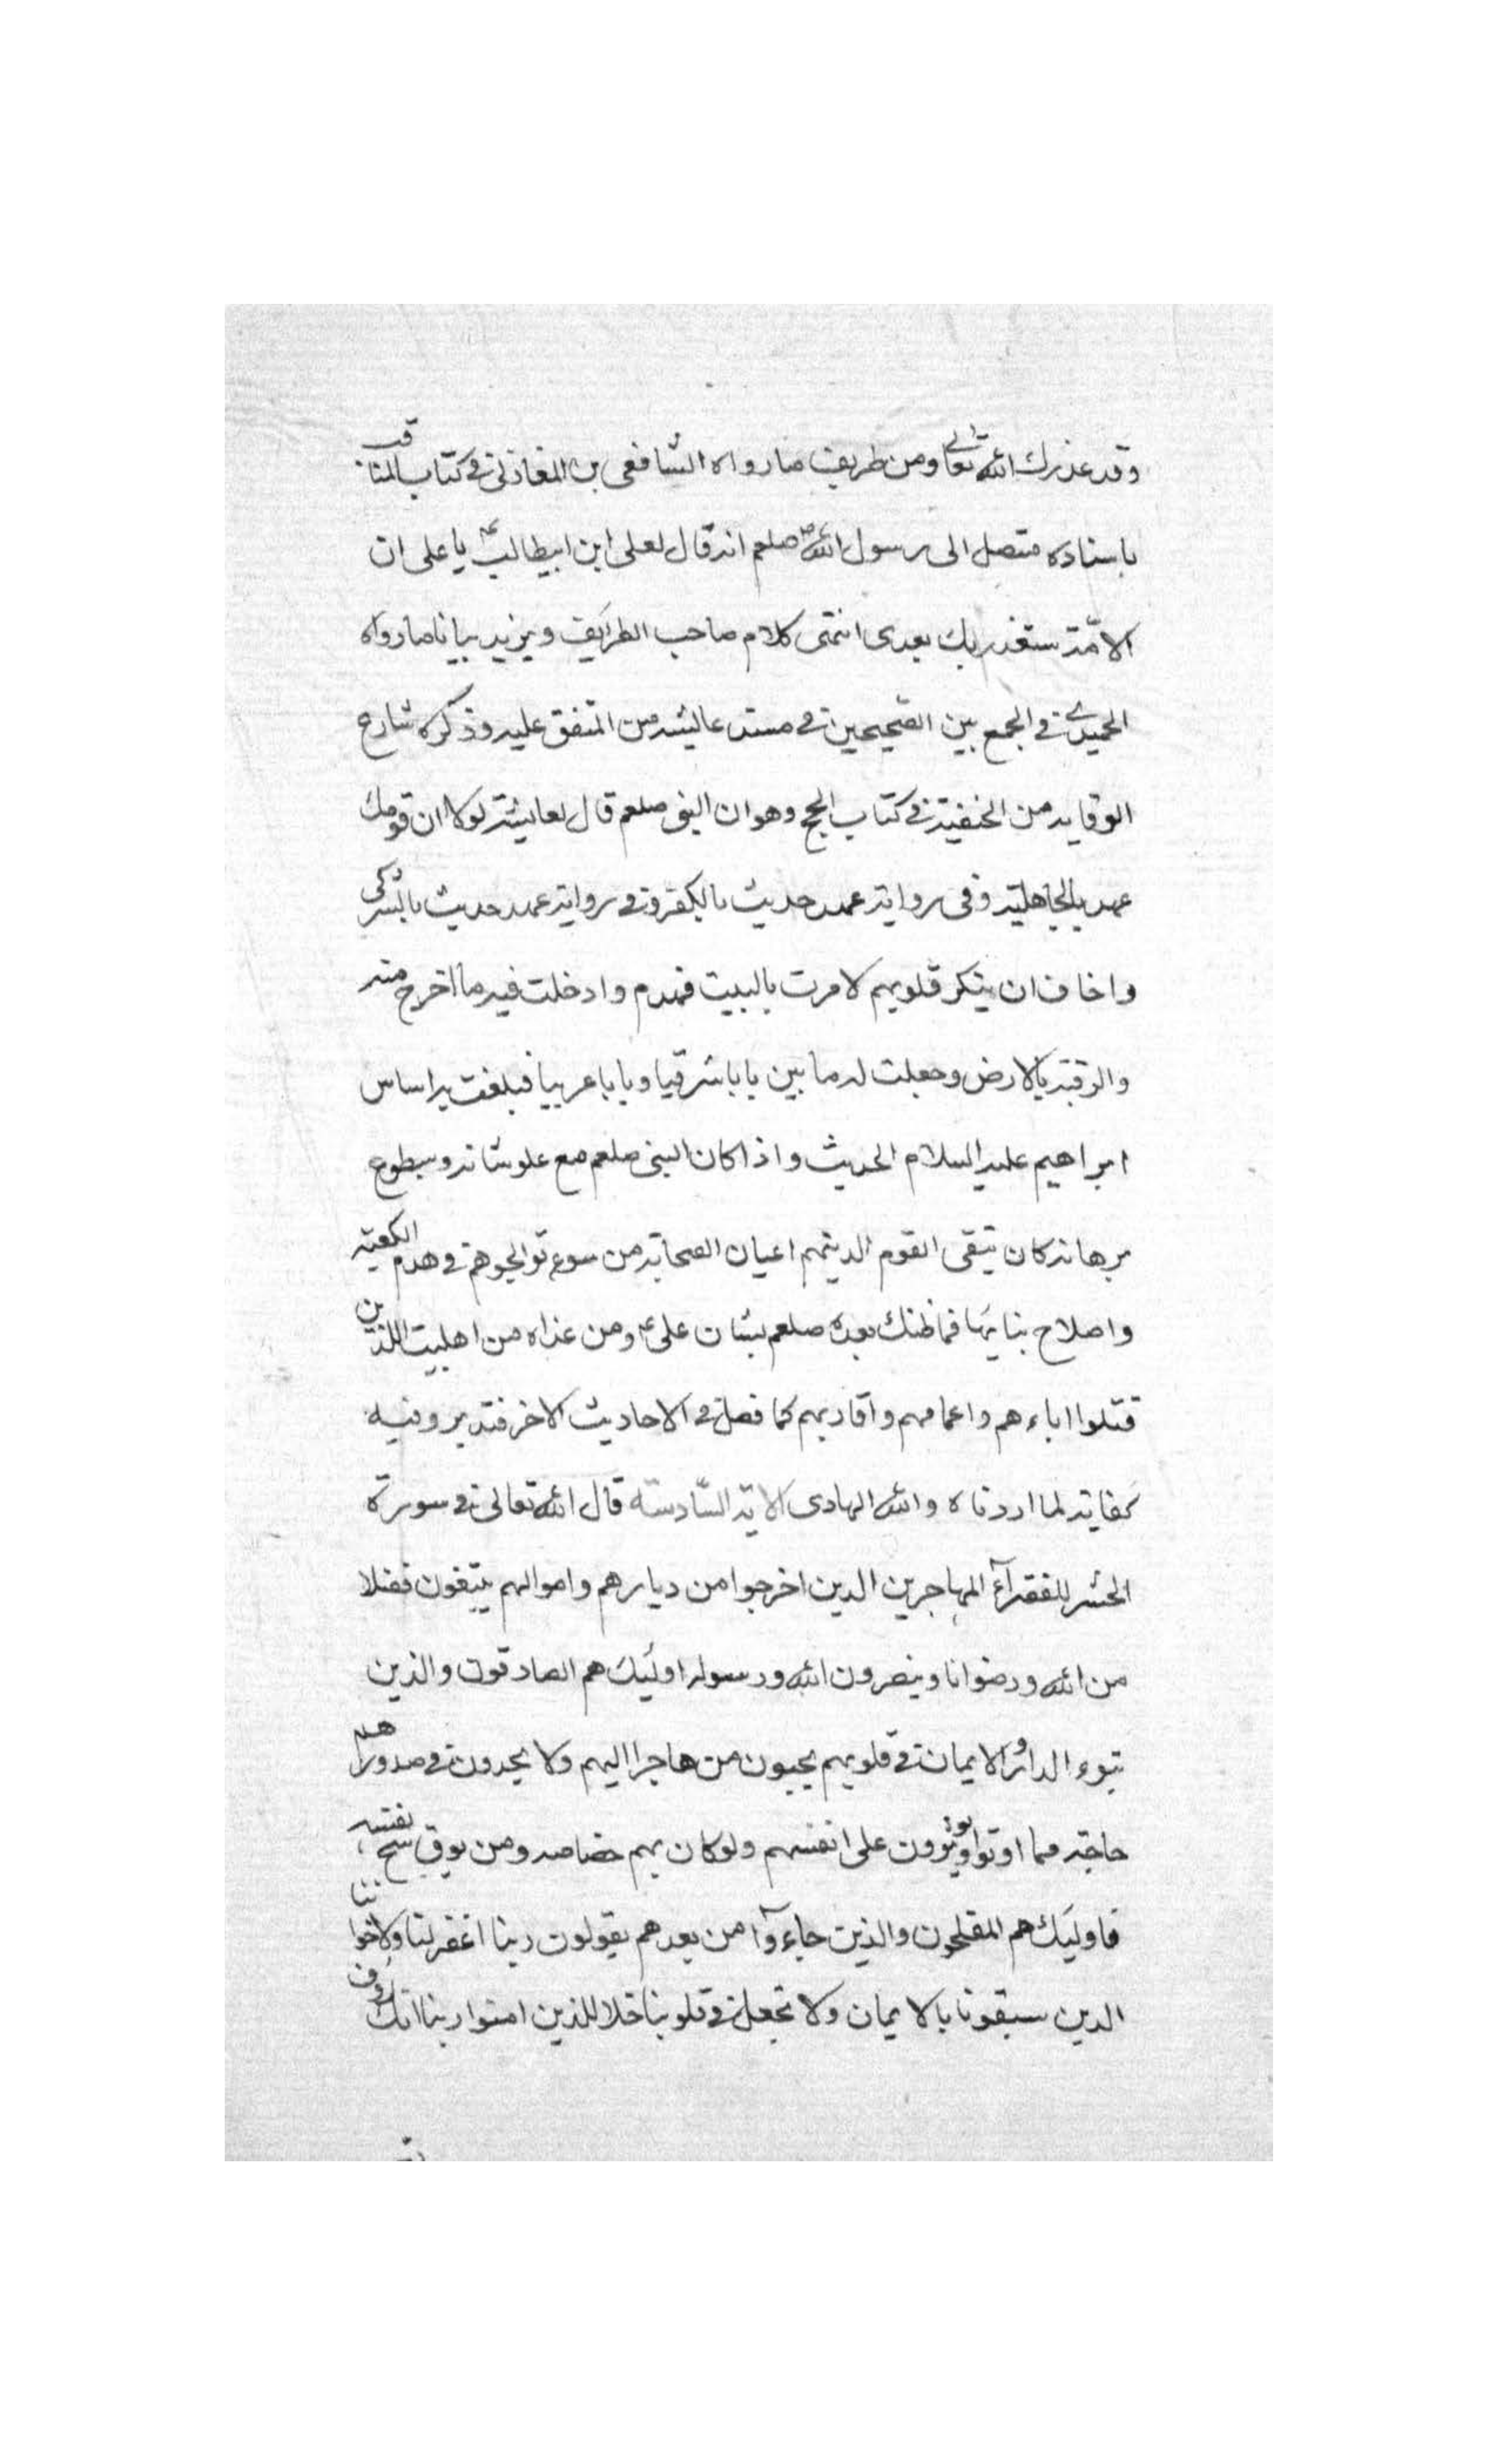 وقد عذرك الله تعالى ومن طريف ما رواه الشافعى بن المغازلى فى كتاب المناقب
باسناده متصل الى رسول الله صلعم انه قال لعلى ابن ابيطالب ع يا على ان
الامّة ستغدر بك بعدى انتهى كلام صاحب الطرايف ويزيد بيانا ما رواه
الحميدى فى الجمع بين الصّحيحين فى مسند عايشه من المتفق عليه وذكره شارح
الوقايه من الحنفيّة فى كتاب الحج وهو ان النبى صلعم قال لعايشة لولا ان قومك
عهد بالجاهليّة وفى رواية عهد حديث بالكفر وفى رواية عهد حديث بالشرك
واخاف ان ينكر قلوبهم لامرت بالبيت فهدم وادخلت فيه ما اخرج منه
والزقته بالارض وجعلت له ما بين بابا شرقيا وبابا غربيا فبلغت به اساس
ابراهيم عليه السلام الحديث واذا كان النبى صلعم مع علو شانه وسطوع
برهانه كان يتقى القوم الذينهم اعيان الصحابة من سوع تواجوهم فى هدم الكعبة
واصلاح بنايها فما ظنك بعده صلعم بشان على ع ومن عداه من اهلبيت اللذين
قتلوا اباءهم واعمامهم واقاربهم كما فصل فى الاحاديث الاخر فتدبر وفيه
كفاية لما اردناه والله الهادى الاية السّادسّة قال الله تعالى فى سورة
الحشر للفقرآء المهاجرين الدين اخرجوا من ديارهم واموالهم يبتغون فضلا
من الله ورضوانا وينصرون الله ورسوله اولئك هم الصادقون والذين
تبوء الدار والايمان فى قلوبهم يحبون من هاجر اليهم ولا يجدون فى صدورهم
حاجة مما اوتوا ويوثرون على انفسهم ولو كان بهم خصاصه ومن يوق شح نفسه
فاولئك هم المفلحون والذين جاءوآ من بعدهم يقولون ربنا اغفر لنا ولاخواننا
الدين سبقونا بالايمان ولا تجعل فى قلوبنا غلا للذين امنوا ربنا انك رؤف